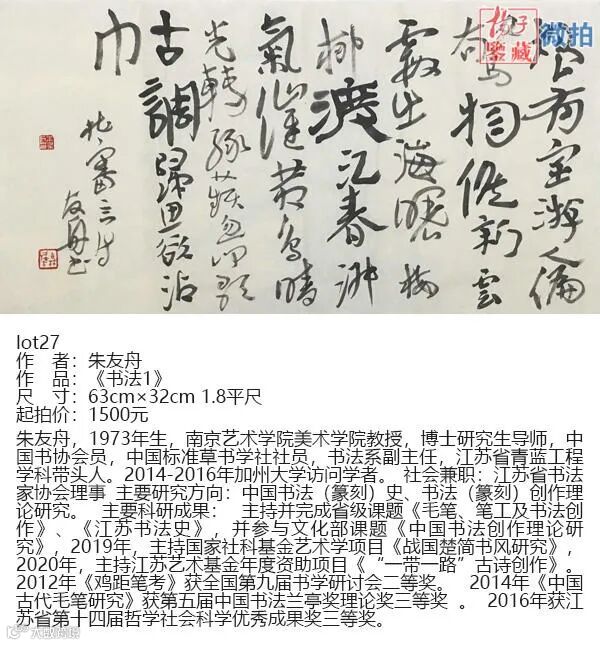 揚子
鑒藏
微拍
獨有宦游人偏
驚物候新雲
霞出海曙梅
柳渡江春淑
氣催黃鳥晴
光轉綠蘋忽聞歌
古調歸思欲沾
巾
杜審言詩
友舟书
lot27
作 者：朱友舟
作 品：《书法1》
尺 寸：63cm×32cm 1.8平尺
起拍价：1500元
朱友舟，1973年生，南京艺术学院美术学院教授，博士研究生导师，中
国书协会员，中国标准草书学社社员，书法系副主任，江苏省青蓝工程
学科带头人。2014-2016年加州大学访问学者。 社会兼职：江苏省书法
家协会理事 主要研究方向：中国书法（篆刻）史、书法（篆刻）创作理
论研究。 主要科研成果： 主持并完成省级课题《毛笔、笔工及书法创
作》、《江苏书法史》，并参与文化部课题《中国书法创作理论研
究》，2019年，主持国家社科基金艺术学项目《战国楚简书风研究》，
2020年，主持江苏艺术基金年度资助项目《“一带一路”古诗创作》。
2012年《鸡距笔考》获全国第九届书学研讨会二等奖。 2014年《中国
古代毛笔研究》获第五届中国书法兰亭奖理论奖三等奖 。 2016年获江
苏省第十四届哲学社会科学优秀成果奖三等奖。